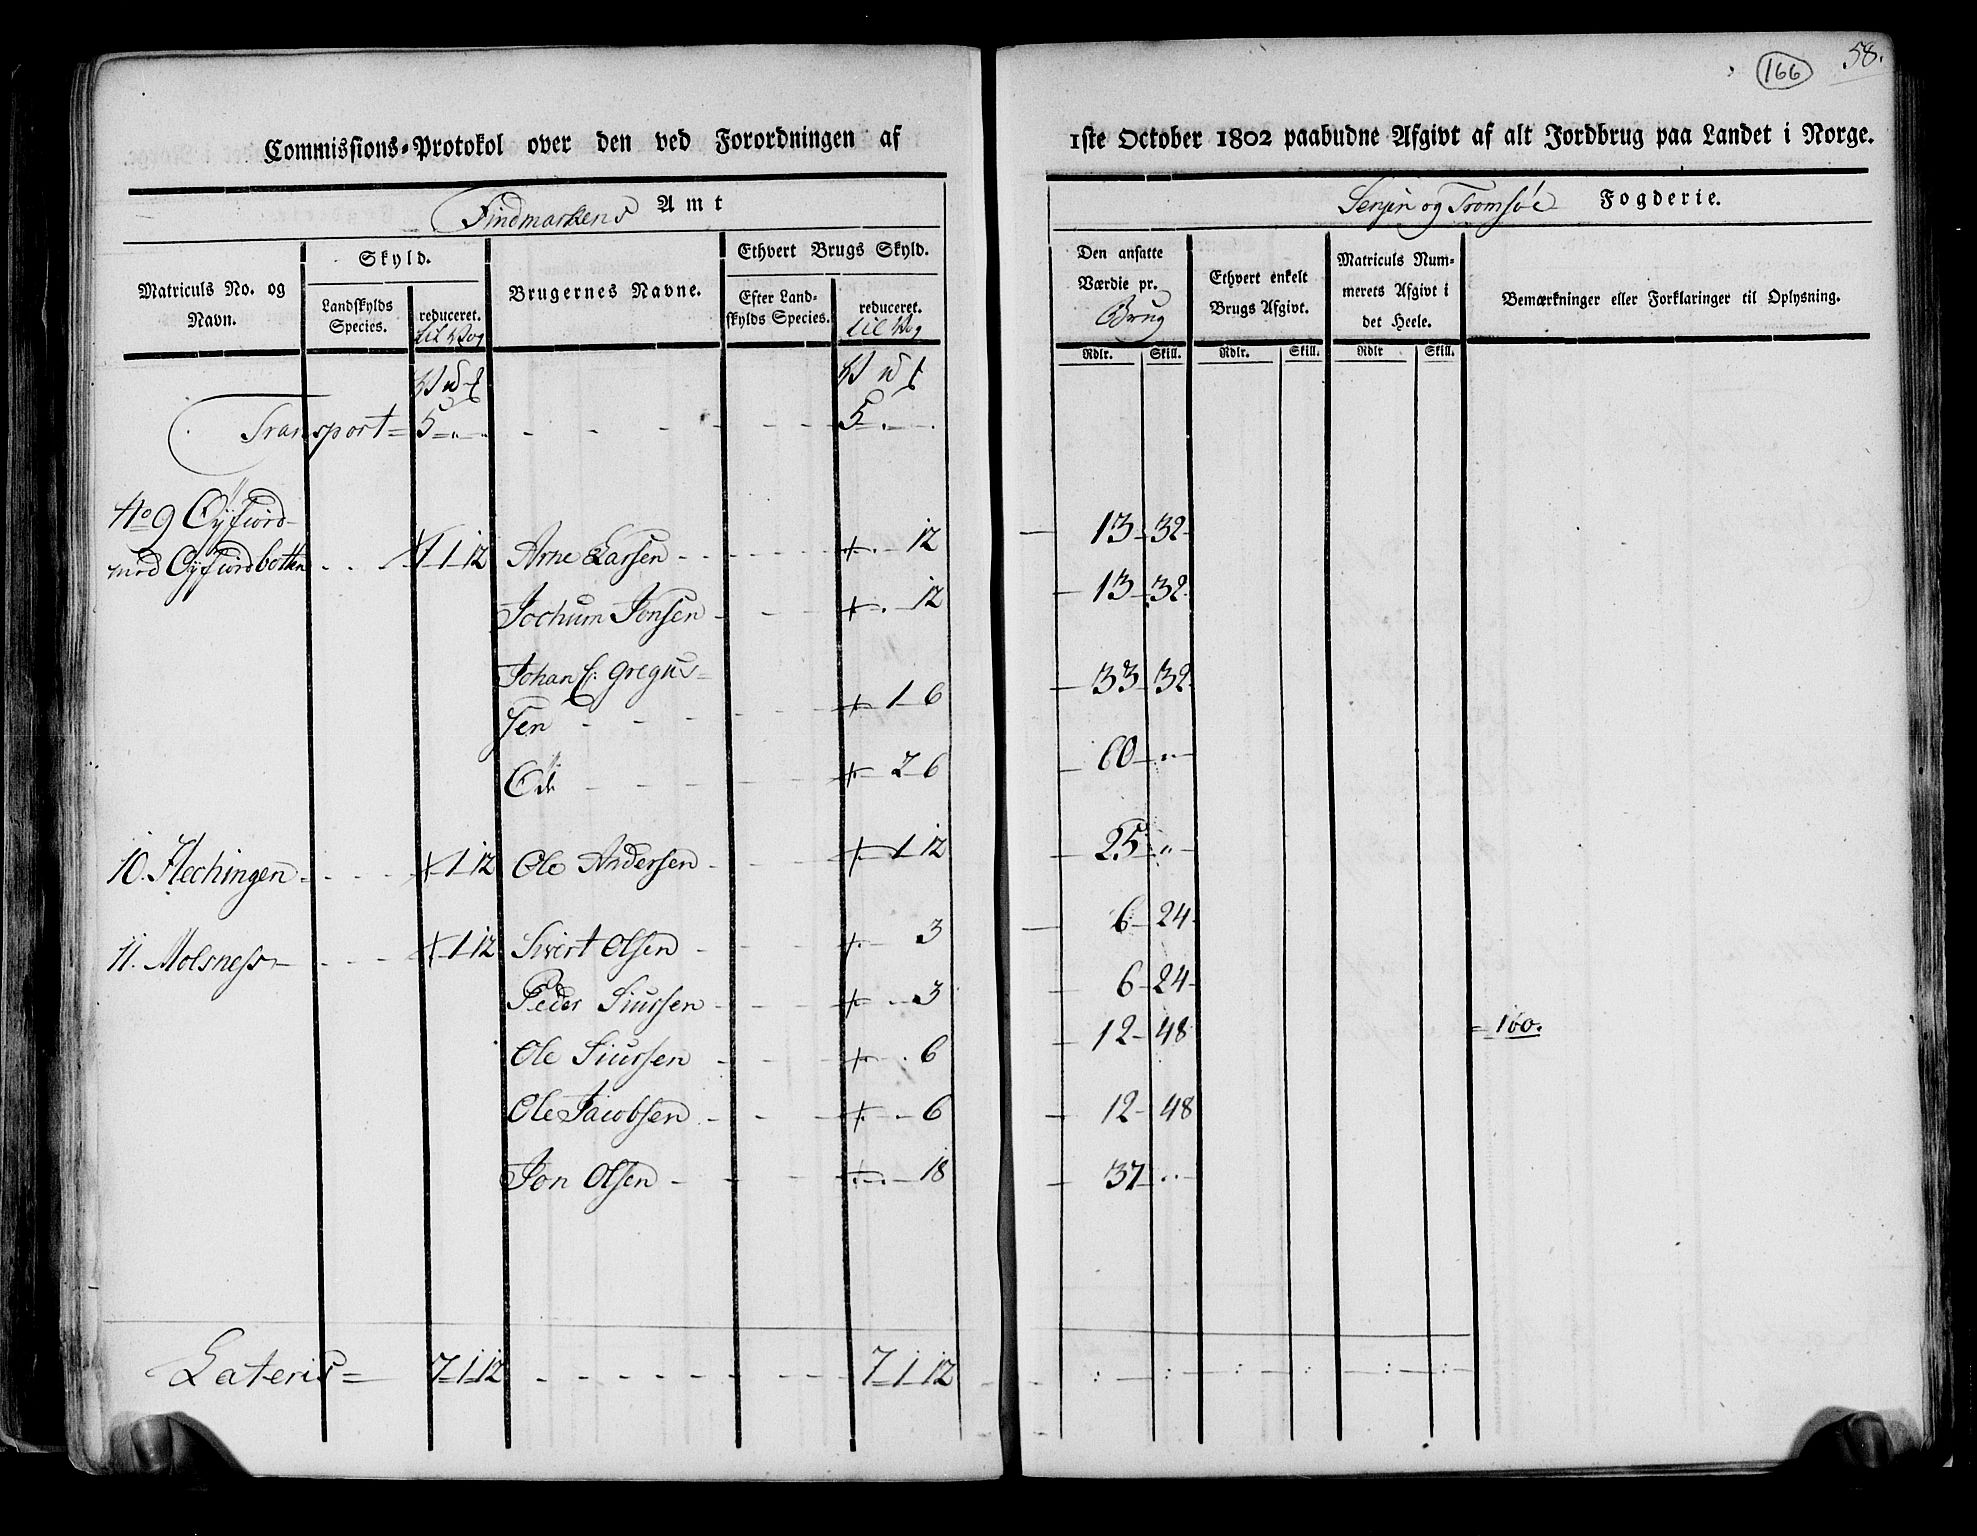 166 58.
Commissions-Protokol over den ved Forordningen af 1ste October 1802 paabudne Afgivt af alt Jordbrug paa Landet i Norge.
Findmarkens Amt
Senjen og Tromsøe Fogderie.
Matriculs No. og Navn.
Skyld.
Landskylds Species.
reduceret. til Vog
Brugernes Navne.
Ethvert Brugs Skyld.
Efter Landskylds Species.
reduceret. til Vog
Den ansatte Værdie pr. Brug
Ethvert enkelt Brugs Afgivt.
Matriculs Nummerets Afgivt i det Heele.
Bemærkninger eller Forklaringer til Oplysning.
Rdlr. Skill. Rdlr. Skill. Rdlr Skill.
Transport = 5 - . - - 5 - . -
No 9 Öyfiord
med Öyfiordbotten 1 1 12 Arne Larsen - - 12 13 - 32
Jochum Jonsen - - 12 13 - 32
Johan C: Gregus-
sen - 1 - 6 33 - 32
Öde - 2 6 60 - "
10. Hechingen - 1 12 Ole Andersen - 1 12 25 - "
11. Molsness - 1 12 Sivert Olsen - 3 6 - 24
Peder Siursen - 3 6 - 24
Ole Siursen - 6 12 - 48 = 160.
Ole Jacobsen - 6 12 - 48
Jon Olsen - 18 37 - "
Lateris = 7 - 1 - 12 - - - 7 - 1 - 12